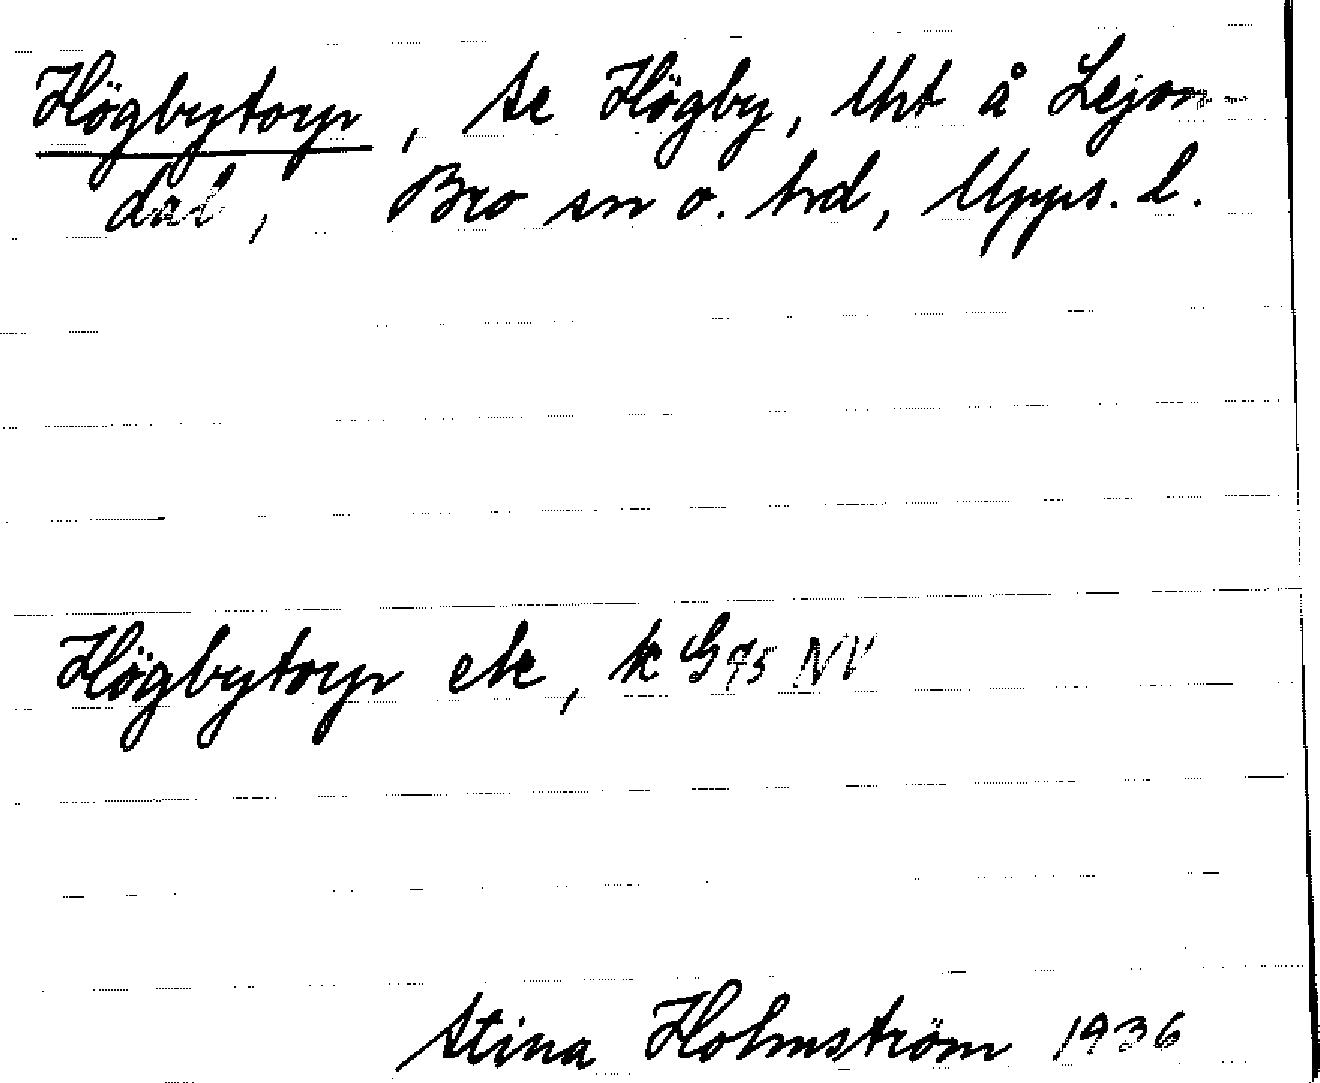 Högbytorp, se Högby, Uht å Lejon-
dal, Bro sn o. hrd, Upps. l.
Högbytorp ek, k G 75 NV
Stina Holmström 1936